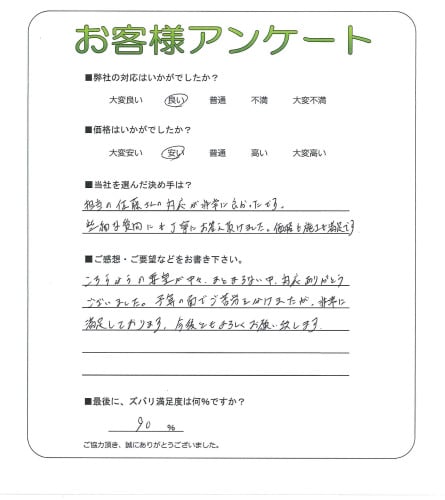 お客様アンケート
■弊社の対応はいかがでしたか？
大変良い 良い 普通 不満 大変不満
■価格はいかがでしたか？
大変安い 安い 普通 高い 大変高い
■当社を選んだ決め手は？
担当の佐藤さんの対応が非常に良かったです。
些細な質問にも丁寧にお答え頂けました。価格も施工も満足です
■ご感想・ご要望などをお書き下さい。
こちらようの要望が中々、まとまらない中、対応ありがとう
ございました。予算の面でご苦労をかけましたが、非常に
満足しております。今後ともよろしくお願い致します。
■最後に、ズバリ満足度は何％ですか？
90 ％
ご協力頂き、誠にありがとうございました。